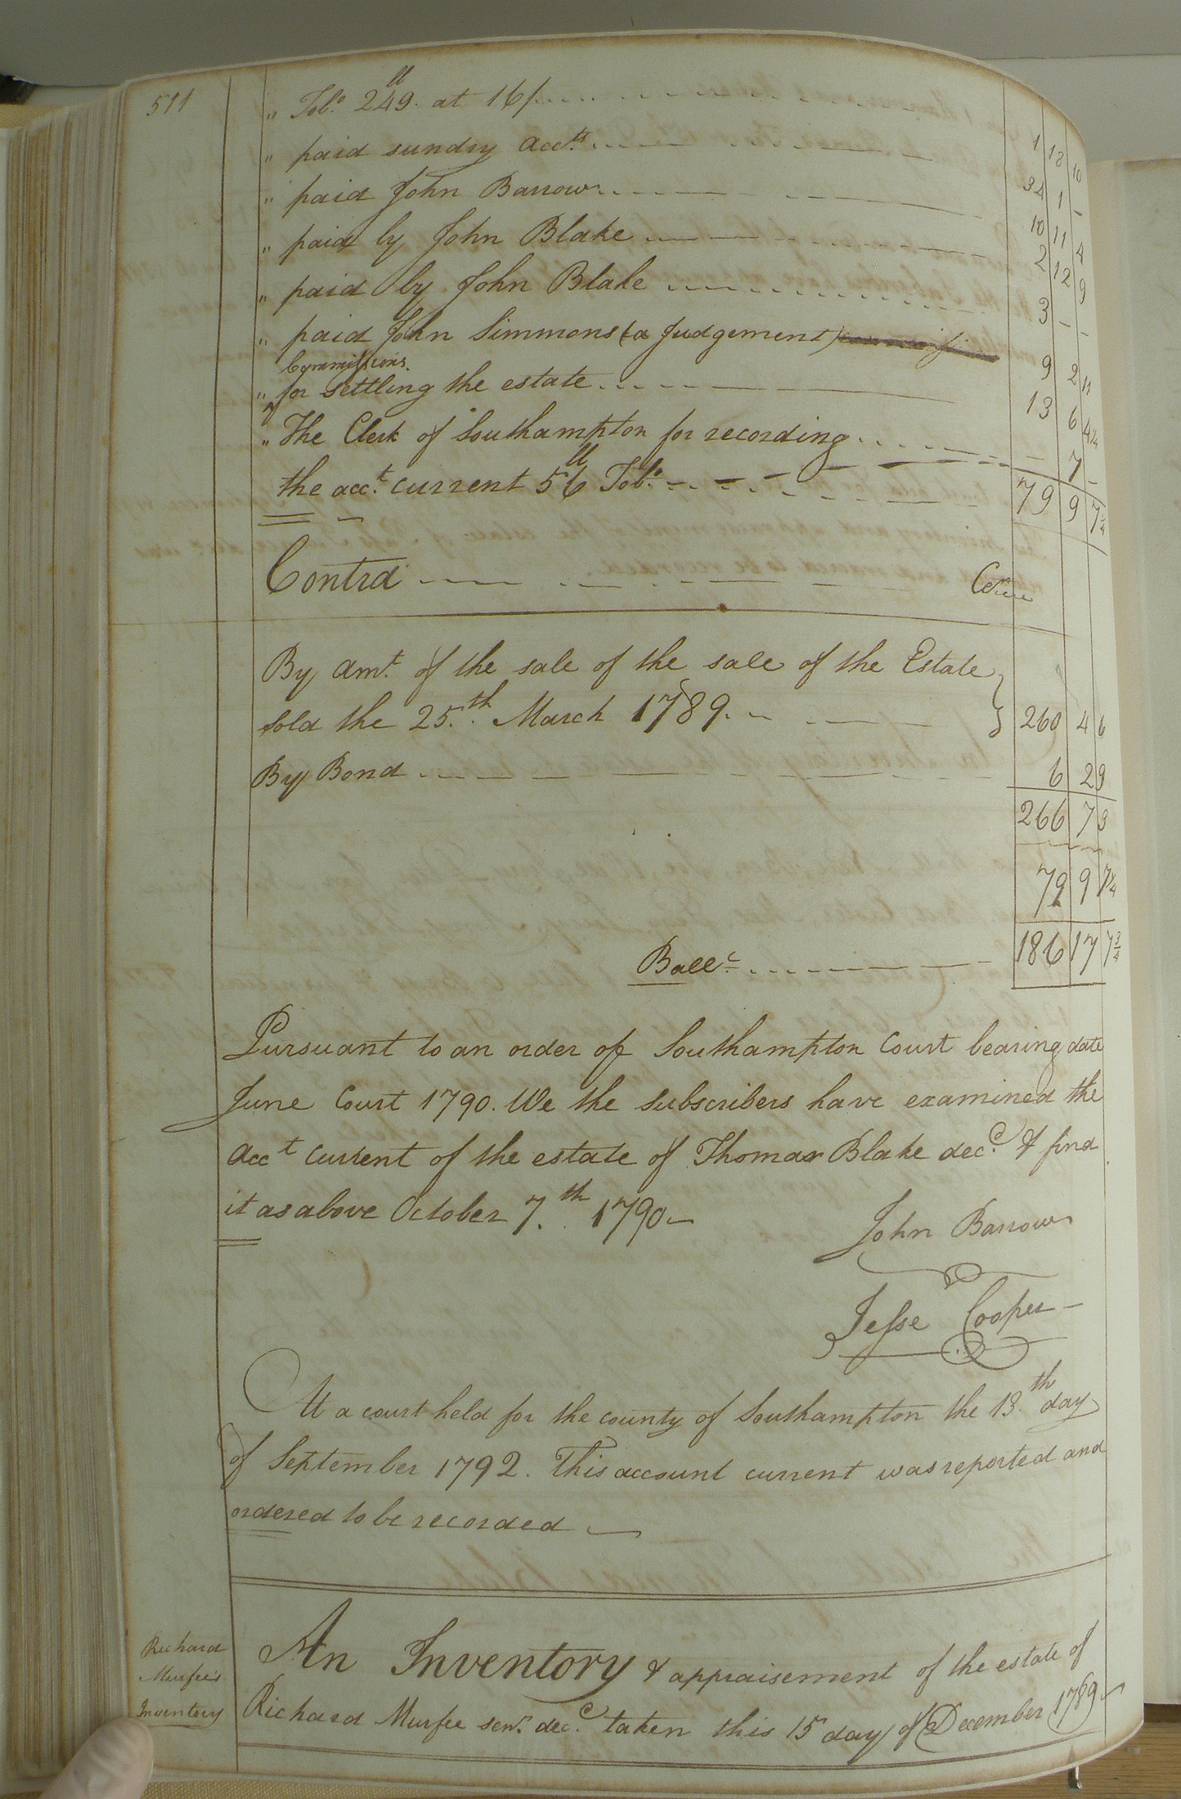 511
" Tob.o 249.ll at 16/ 1 18 10
" paid sundry acc.ts 34 1 -
" paid John Barrow 10 11 4
" paid by John Blake 2 12 9
" paid by John Blake 3 - -
" paid John Simmons (a Judgement) 9 2 11
Commissions.
" for settling the estate 13 6 4 1/4
" The Clerk of Southampton for recording - 7 -
the acc.t current 56ll Tob.o 79 9 7 1/4
Contra
By am.t of the sale of the sale of the Estate
sold the 25.th March 1789. 260 4 6
By Bond 6 2 9
266 7 3
79 9 7 1/4
Ball.c 186 17 7 3/4
Pursuant to an order of Southampton Court bearing date
June Court 1790. We the subscribers have examined the
acc.t current of the estate of Thomas Blake dec.d & find
it as above October 7.th 1790
John Barrow
Jesse Cooper
At a court held for the county of Southampton the 13.th day
of September 1792. This account current was reported and
ordered to be recorded
Richard
Murfee's
Inventory
An Inventory & appraisement of the estate of
Richard Murfee sen.r dec.d taken this 15 day of December 1789